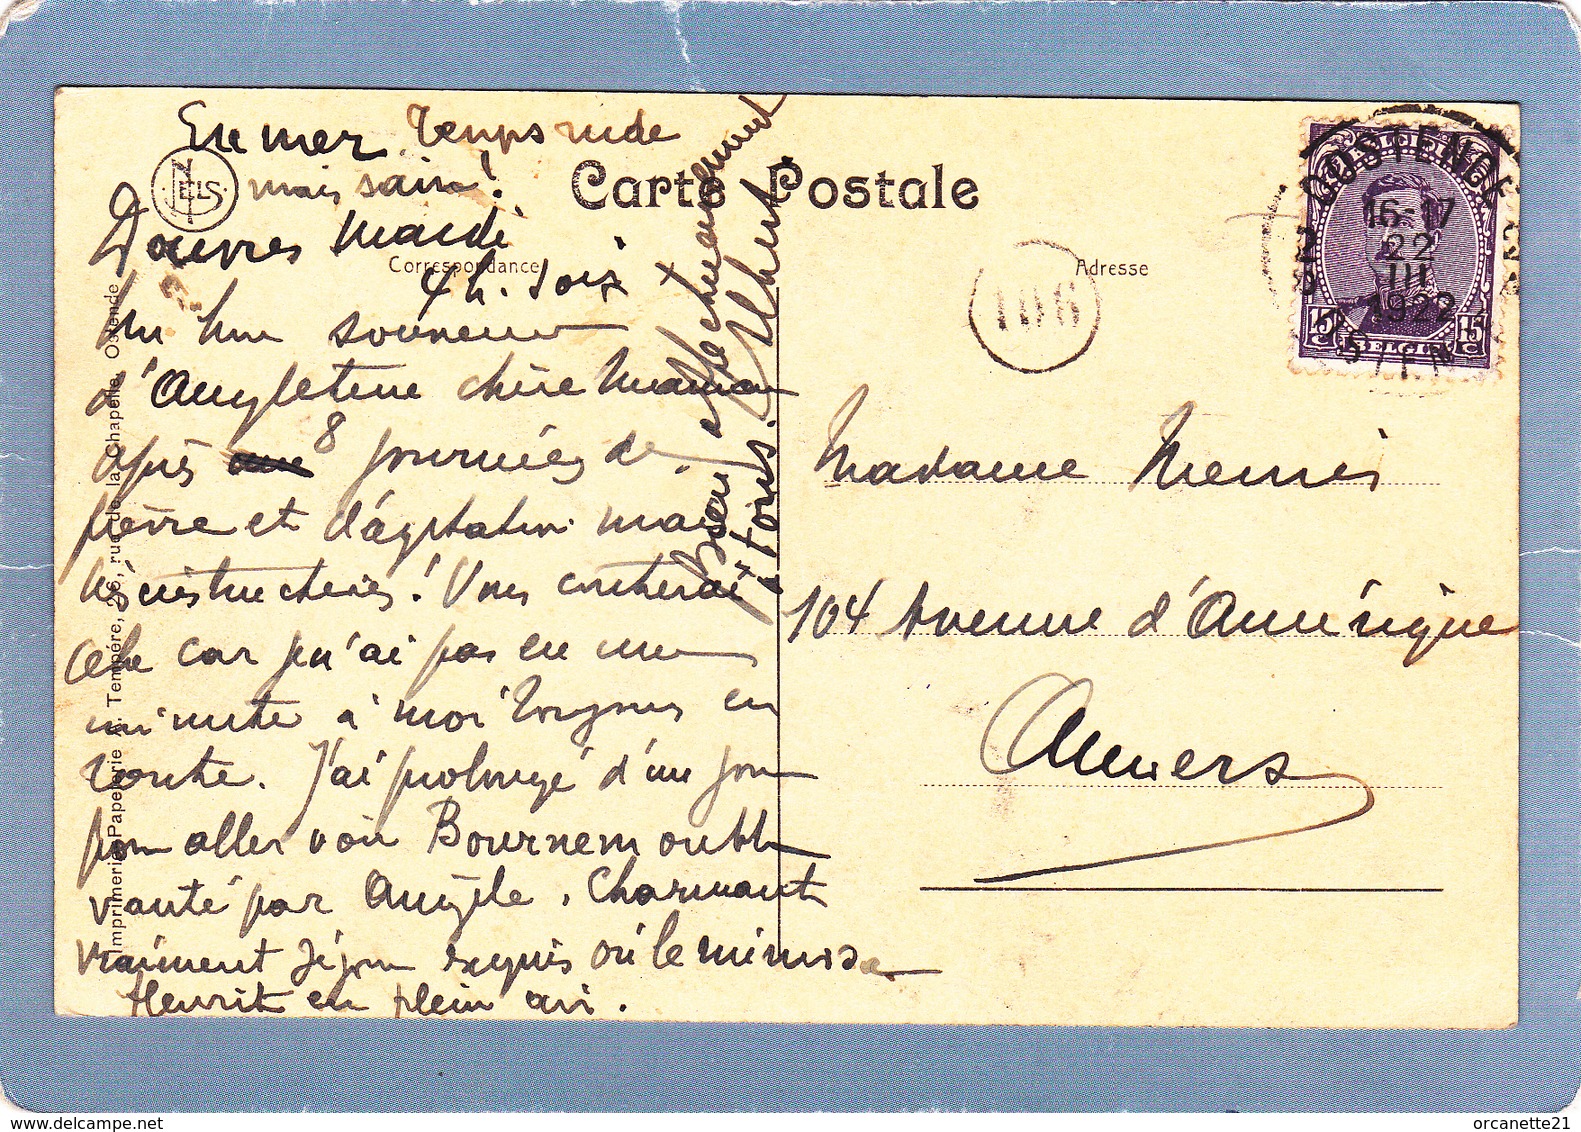 En mer. Temps rude
mais sain!
Douvres Mardi
4 h. soir
NELS
Carte Postale
Correspondance
Adresse
Un bon souvenir
d'Angleterre chère Maman
après 8 journées de
fièvre et d'agitation mais
instructives! Vous conterai
cela car n'ai pas eu une
minute à moi toujours en
route. J'ai prolongé d'un jour
pour aller voir Bournemouth
vanté par Angèle. Charmant
vraiment séjour exquis où le mimosa
fleurit en plein air.
Bien affectueusement
à tous. Albert
Imprimerie-Papeterie A. Tempère, 26, rue de la Chapelle, Ostende
106
OOSTENDE
16-17
22
III
1922
OSTEN
BELGIQUE
15 C
15 C
BELGIË
Madame Nennis
104 Avenue d'Amérique
Anvers
delcampe.net
orcanette21